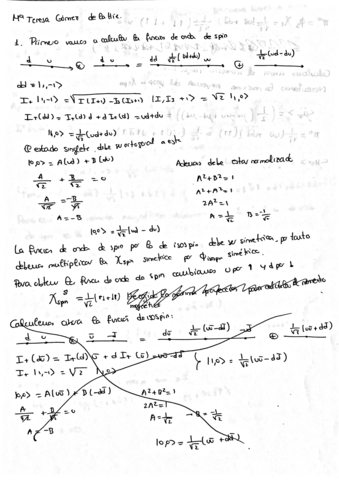 Mª Teresa Gómez de la Hoz.
1. Primero vamos a calcular la función de onda de spin
d u ⊗ d u = dd 1/√2 (ud+du) u ⊕ 1/√2 (ud-du)
dd = |1,-1>
I+ |1,-1> = √(I(I+1) - I3(I3+1)) |I, I3+1> = √2 |1,0>
I+(dd) = I+(d) d + d I+(d) = ud+du
|1,0> = 1/√2 (ud+du)
El estado singlete debe ser ortogonal a este
|0,0> = A(ud) + B(du) Además debe estar normalizado
A/√2 + B/√2 = 0 A²+B²=1
A²+A²=1
A/√2 = -B/√2 2A²=1
A=-B A=1/√2 B=-1/√2
|00> = 1/√2 (ud - du)
La función de onda de spin por la de isospín debe ser simétrica, por tanto
debemos multiplicar la χspin simética por simética.
Para obtener la función de onda de spin cambiamos u por ↑ y d por ↓
χ^S spin = 1/√2 (↑↓+↓↑)
Calculemos ahora la función de isospin:
d u ⊗ ū -d̄ = dū 1/√2 (uū-dd̄) -ud̄ ⊕ 1/√2 (uū+dd̄)
I+(dū) = I+(d) ū + d I+(ū) = uū-dd̄
I+ |1,-1> = √2 |1,0> } |1,0> = 1/√2 (uū-dd̄)
|0,0> = A(uū) + B(-dd̄) A²+B²=1
2A²=1
A/√2 + B/√2 = 0 A=1/√2 → B=-1/√2
A=-B
|0,0> = 1/√2 (uū+dd̄)